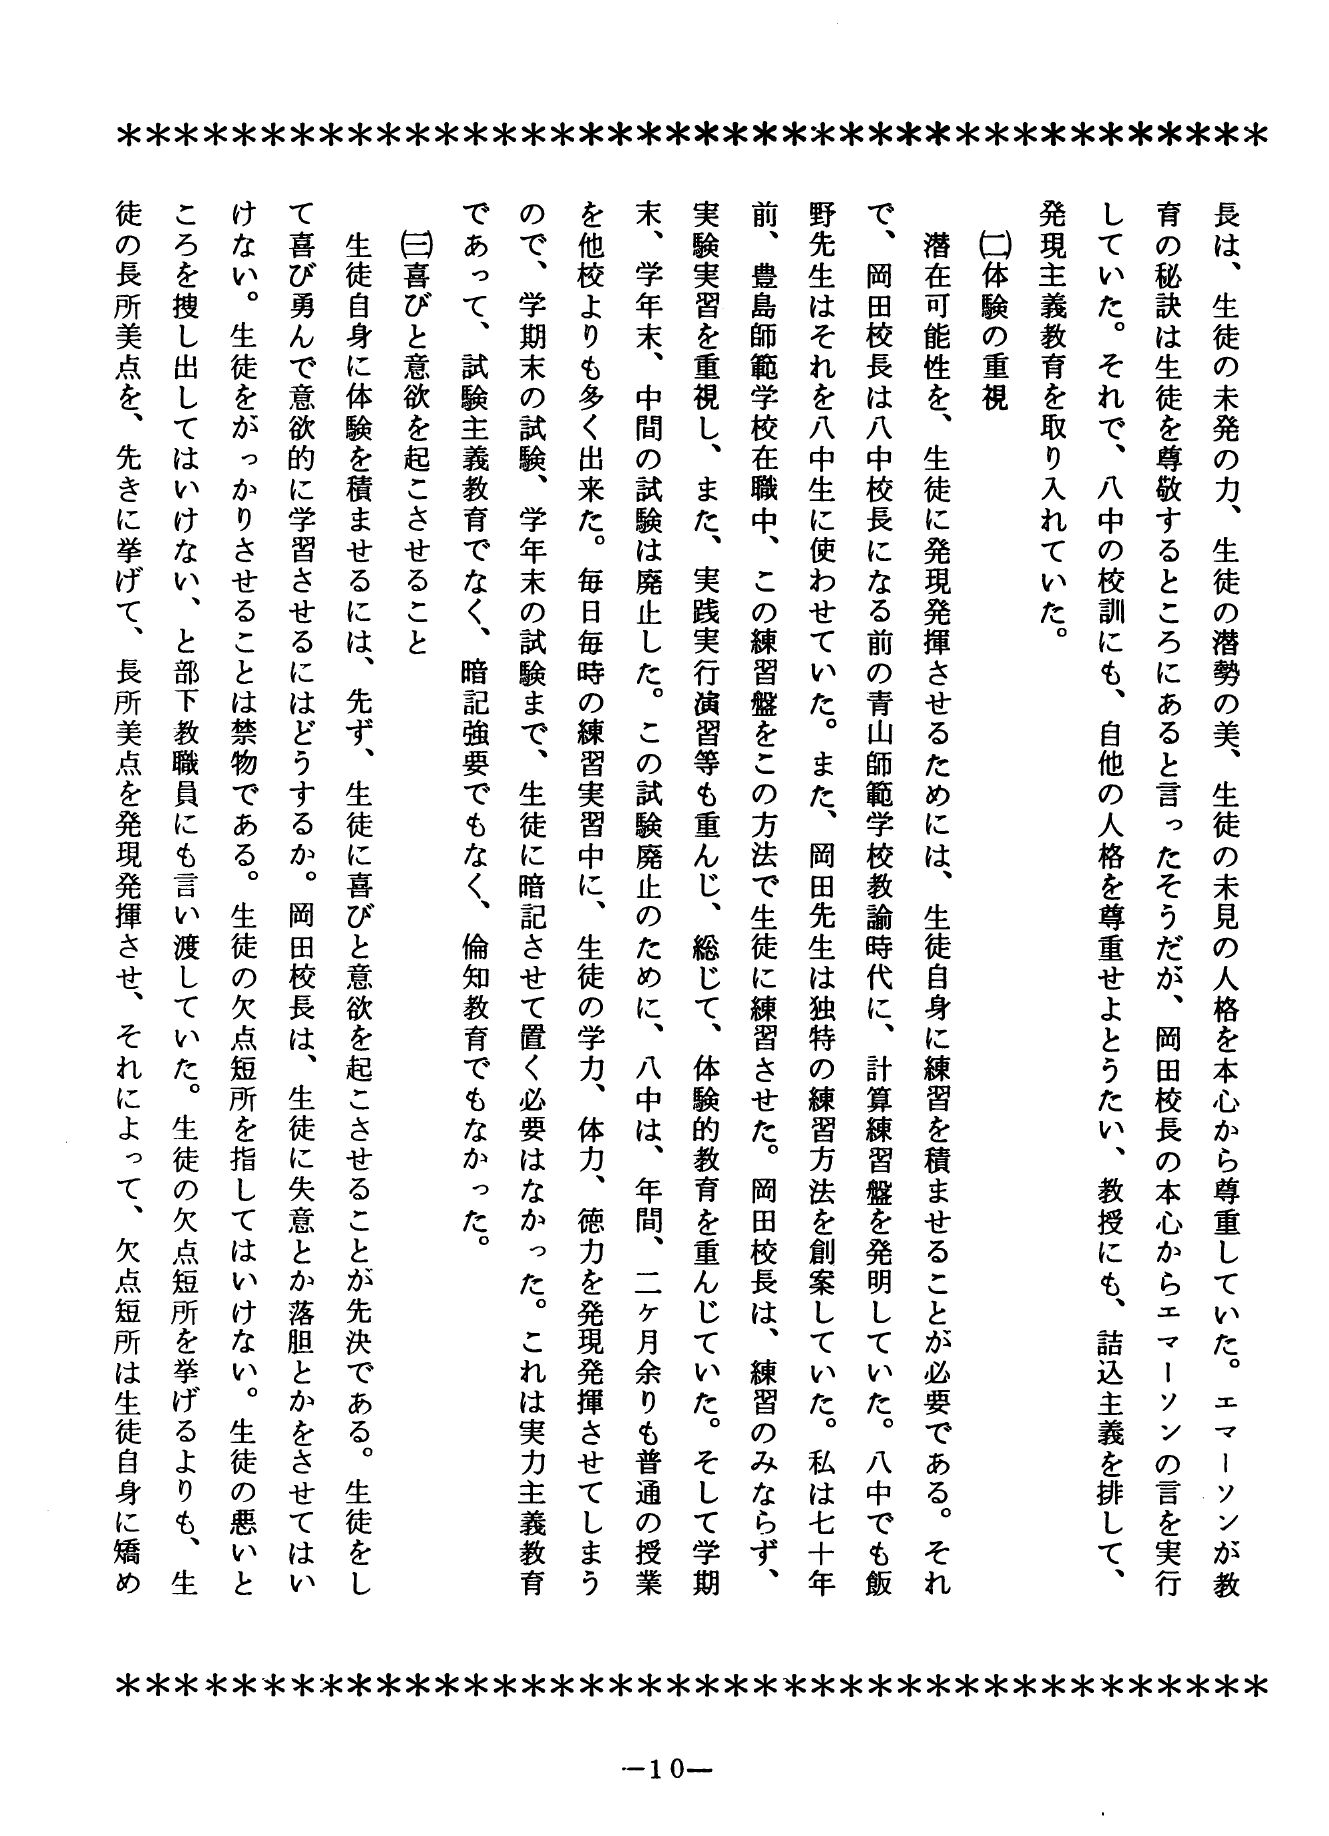 ****************************************
長は、生徒の未発の力、生徒の潜勢の美、生徒の未見の人格を本心から尊重していた。エマーソンが教
育の秘訣は生徒を尊敬するところにあると言ったそうだが、岡田校長の本心からエマーソンの言を実行
していた。それで、八中の校訓にも、自他の人格を尊重せよとうたい、教授にも、詰込主義を排して、
発現主義教育を取り入れていた。
㈡体験の重視
潜在可能性を、生徒に発現発揮させるためには、生徒自身に練習を積ませることが必要である。それ
で、岡田校長は八中校長になる前の青山師範学校教諭時代に、計算練習盤を発明していた。八中でも飯
野先生はそれを八中生に使わせていた。また、岡田先生は独特の練習方法を創案していた。私は七十年
前、豊島師範学校在職中、この練習盤をこの方法で生徒に練習させた。岡田校長は、練習のみならず、
実験実習を重視し、また、実践実行演習等も重んじ、総じて、体験的教育を重んじていた。そして学期
末、学年末、中間の試験は廃止した。この試験廃止のために、八中は、年間、二ヶ月余りも普通の授業
を他校よりも多く出来た。毎日毎時の練習実習中に、生徒の学力、体力、徳力を発現発揮させてしまう
ので、学期末の試験、学年末の試験まで、生徒に暗記させて置く必要はなかった。これは実力主義教育
であって、試験主義教育でなく、暗記強要でもなく、倫知教育でもなかった。
㈢喜びと意欲を起こさせること
生徒自身に体験を積ませるには、先ず、生徒に喜びと意欲を起こさせることが先決である。生徒をし
て喜び勇んで意欲的に学習させるにはどうするか。岡田校長は、生徒に失意とか落胆とかをさせてはい
けない。生徒をがっかりさせることは禁物である。生徒の欠点短所を指してはいけない。生徒の悪いと
ころを捜し出してはいけない、と部下教職員にも言い渡していた。生徒の欠点短所を挙げるよりも、生
徒の長所美点を、先きに挙げて、長所美点を発現発揮させ、それによって、欠点短所は生徒自身に矯め
****************************************
—10—